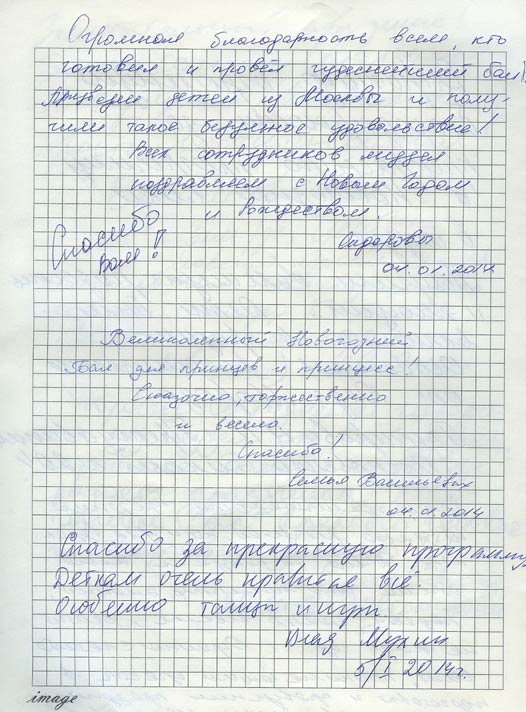 Огромная благодарность всем, кто
готовил и провёл чудеснейший бал!
Привезли детей из Москвы и полу-
чили такое безумное удовольствие!
Всех сотрудников музея
поздравляем с Новым Годом
и Рождеством.
Спасибо
Вам!
Сидоровы
04.01.2014
Великолепный Новогодний
Бал для принцев и принцесс!
Сказочно, торжественно
и весело.
Спасибо!
Семья Васильевых
04.01.2014
Спасибо за прекрасную программу
Деткам очень нравится всё.
Особенно танцы и игры.
Влад Мухин
5/I 2014г.
image